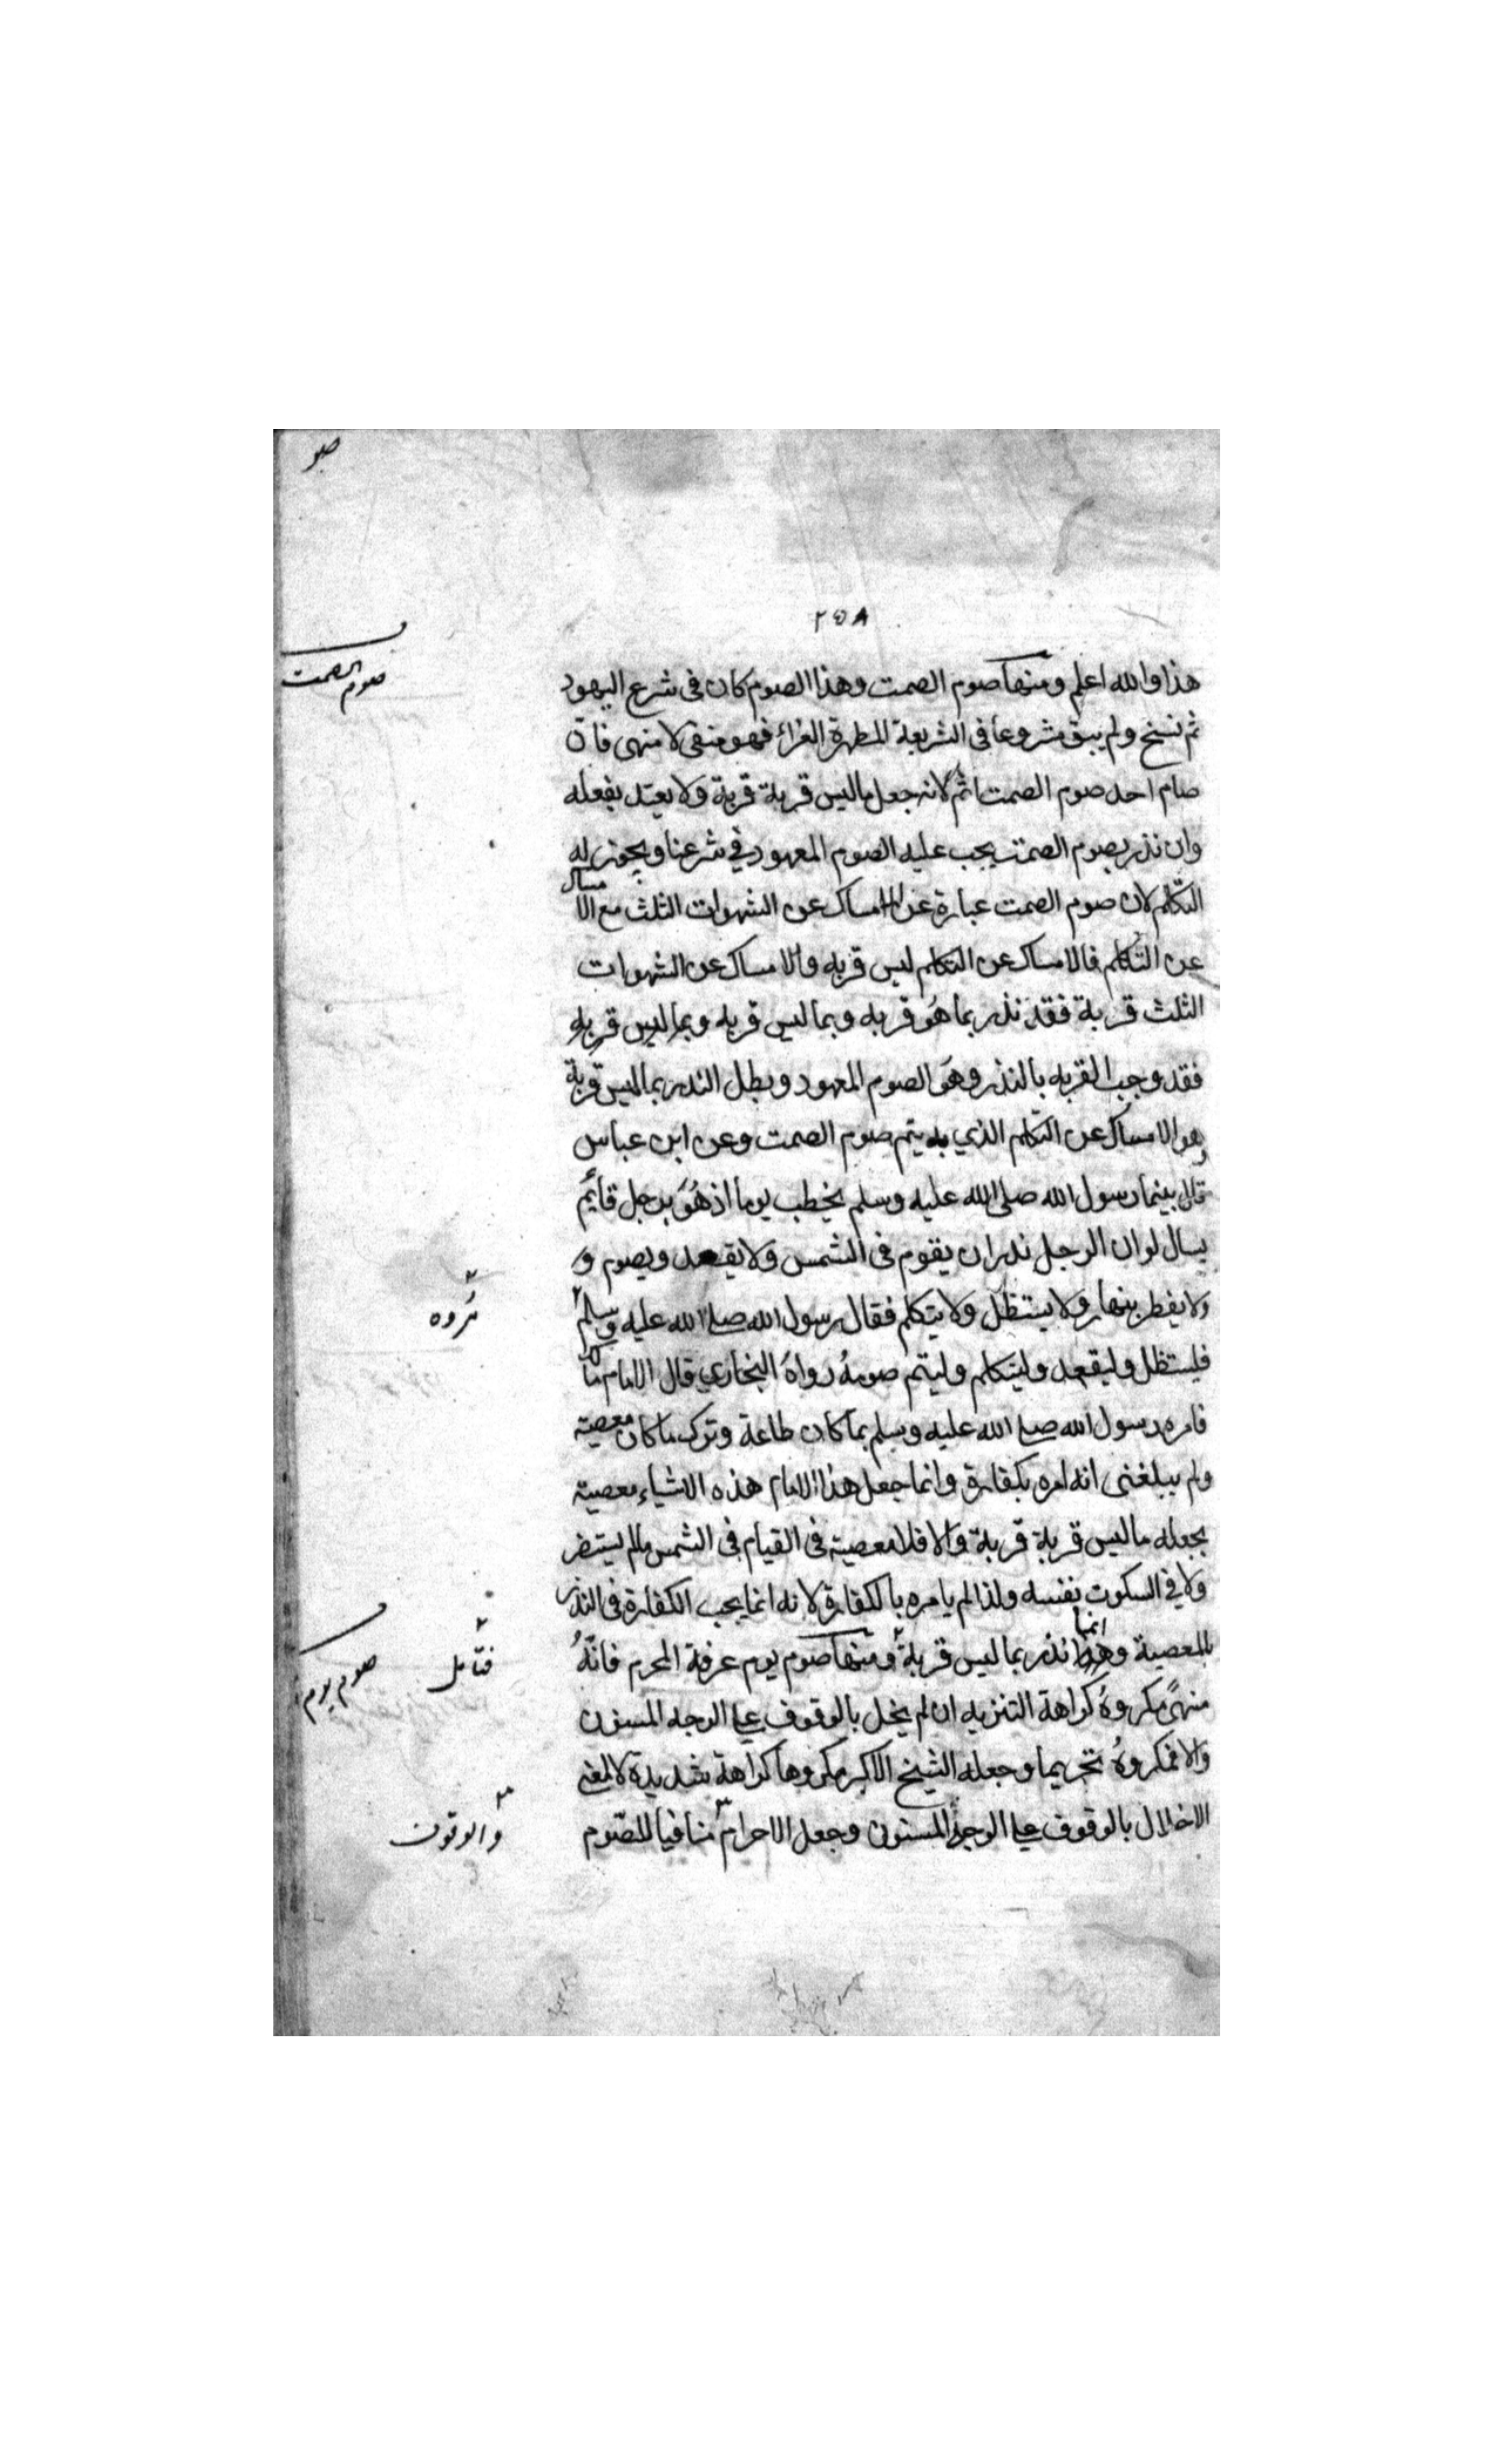 صو
٢٥٨
صوم الصمت
هذا والله اعلم ومنها صوم الصمت وهذا الصوم كان فى شرع اليهود
ثم نسخ ولم يبق مشروعا فى الشريعة المطهرة الغراء فهو منفى لا منهى فان
صام احد صوم الصمت اثم لانه جعل ماليس قربة قربة ولا يعتد بفعله
وان نذر بصوم الصمت يجب عليه الصوم المعهود في شرعنا ويجوز له
التكلم لان صوم الصمت عبارة عن الامساك عن الشهوات الثلث مع الامساك
عن التكلم فالامساك عن التكلم ليس قربه والامساك عن الشهوات
الثلث قربة فقد نذر بما هو قربه وبما ليس قربه وبما ليس قربه
فقد وجب القربه بالنذر وهو الصوم المعهود وبطل النذر بما ليس قربة
وهو الامساك عن التكلم الذي به يتم صوم الصمت وعن ابن عباس
قال بينما رسول الله صلى الله عليه وسلم يخطب يوما اذ هو برجل قائم
يسال لو ان الرجل نذر ان يقوم فى الشمس ولا يقعد ويصوم و
ولا يفطر بنهار ولا يستظل ولا يتكلم فقال رسول الله صلى الله عليه وسلم
مروه
فليستظل وليقعد وليتكلم وليتم صومه رواه البخاري قال الامام مالك
فامره رسول الله صلى الله عليه وسلم بما كان طاعة وترك ما كان معصية
ولم يبلغنى انه امره بكفارة وانما جعل هذا الامام هذه الاشياء معصية
بجعله ماليس قربة قربة والا فلا معصية فى القيام فى الشمس مالم يستضر
ولا في السكوت نفسه ولذا لم يامره بالكفارة لانه انما يجب الكفارة فى النذر
بالمعصية وهذا انما نذر بما ليس قربة ومنها صوم يوم عرفة المحرم فانه
فتأمل
صوم يوم
منهى مكروه كراهة التنزيه ان لم يخل بالوقوف على الوجه المسنون
والا فمكروه تحريما وجعله الشيخ الاكبر مكروها كراهة شديدة لا لمعنى
الاخلال بالوقوف على الوجه المسنون وجعل الاحرام منافيا للصوم
والوقوف